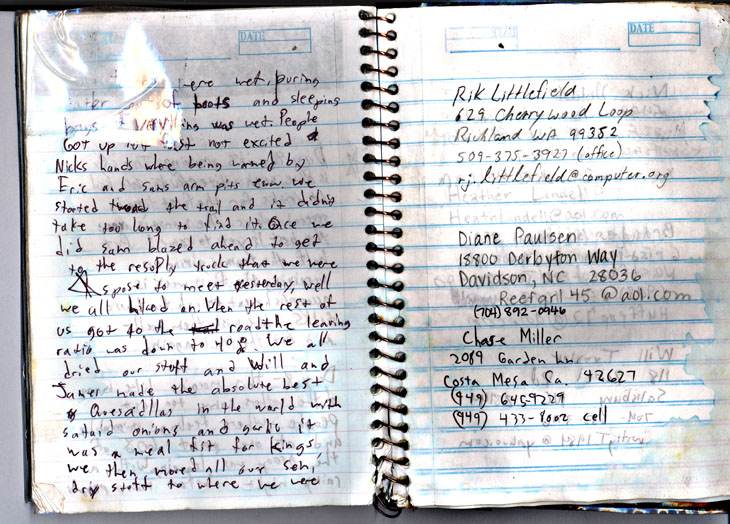 DATE
ere wet, puring
of boots and sleeping
bags was wet. People
Got up but not excited
Nicks hands where being warmed by
Eric and sams arm pits we
started the trail and it didnt
take too long to find it. Once we
did sam blazed ahead to get
to the resuply truck that we were
spose to meet yesterday, well
we all hiked on. When the rest of
us got to the road the leaning
ratio was down to 40%. We all
dried our stuff and Will and
James made the absolute best
Quesadillas in the world with
sataid onions and garlic it
was a meal fit for kings
we then moved all our
dry stuff to where we were
DATE
Rik Littlefield
629 Cherrywood Loop
Richland WA 99352
509-375-3927 (office)
rj.littlefield@computer.org
Heather Lindell
Heatrlindell@aol.com
Diane Paulsen
18800 Derbyton Way
Davidson, NC 28036
Reefgrl45@aol.com
(704) 892-0946
Chase Miller
2089 Garden Ln.
Costa Mesa Ca. 92627
(949) 645-9229
(949) 433-8002 cell